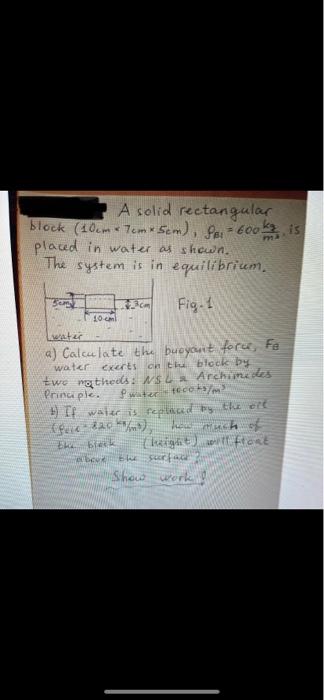 A solid rectangular
block (10cm × 7cm × 5cm), ρBl = 600 kg/m³, is
placed in water as shown.
The system is in equilibrium.
5cm
3cm
Fig.1
10cm
water
a) Calculate the buoyant force, FB
water exerts on the block by
two methods: NSL & Archimedes
Principle. ρwater = 1000 kg/m³
b) If water is replaced by the oil
(ρoil = 820 kg/m³), how much of
the block (height) will float
above the surface?
Show work!